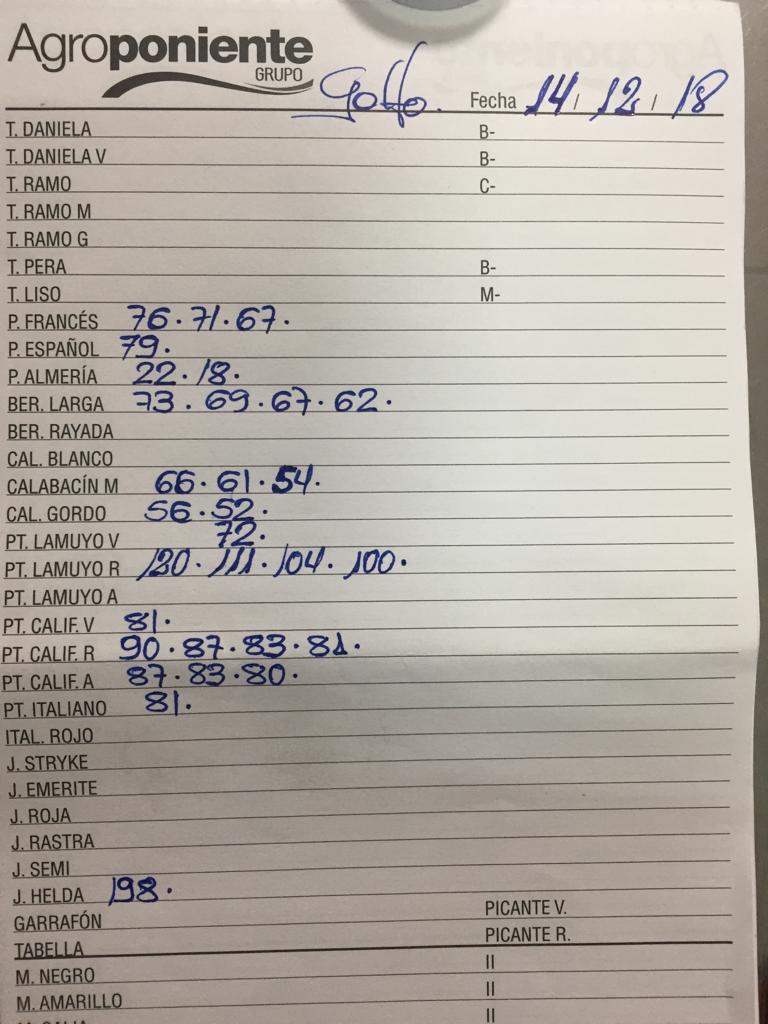 Agroponiente
GRUPO
Golfo. Fecha 14 / 12 / 18
T. DANIELA B-
T. DANIELA V B-
T. RAMO C-
T. RAMO M
T. RAMO G
T. PERA B-
T. LISO M-
P. FRANCÉS 76. 71. 67.
P. ESPAÑOL 79.
P. ALMERÍA 22. 18.
BER. LARGA 73. 69. 67. 62.
BER. RAYADA
CAL. BLANCO
CALABACÍN M 66. 61. 54.
CAL. GORDO 56. 52.
PT. LAMUYO V 72.
PT. LAMUYO R 120. 111. 104. 100.
PT. LAMUYO A
PT. CALIF. V 81.
PT. CALIF. R 90. 87. 83. 81.
PT. CALIF. A 87. 83. 80.
PT. ITALIANO 81.
ITAL. ROJO
J. STRYKE
J. EMERITE
J. ROJA
J. RASTRA
J. SEMI
J. HELDA 198.
GARRAFÓN PICANTE V.
TABELLA PICANTE R.
M. NEGRO II
M. AMARILLO II
II